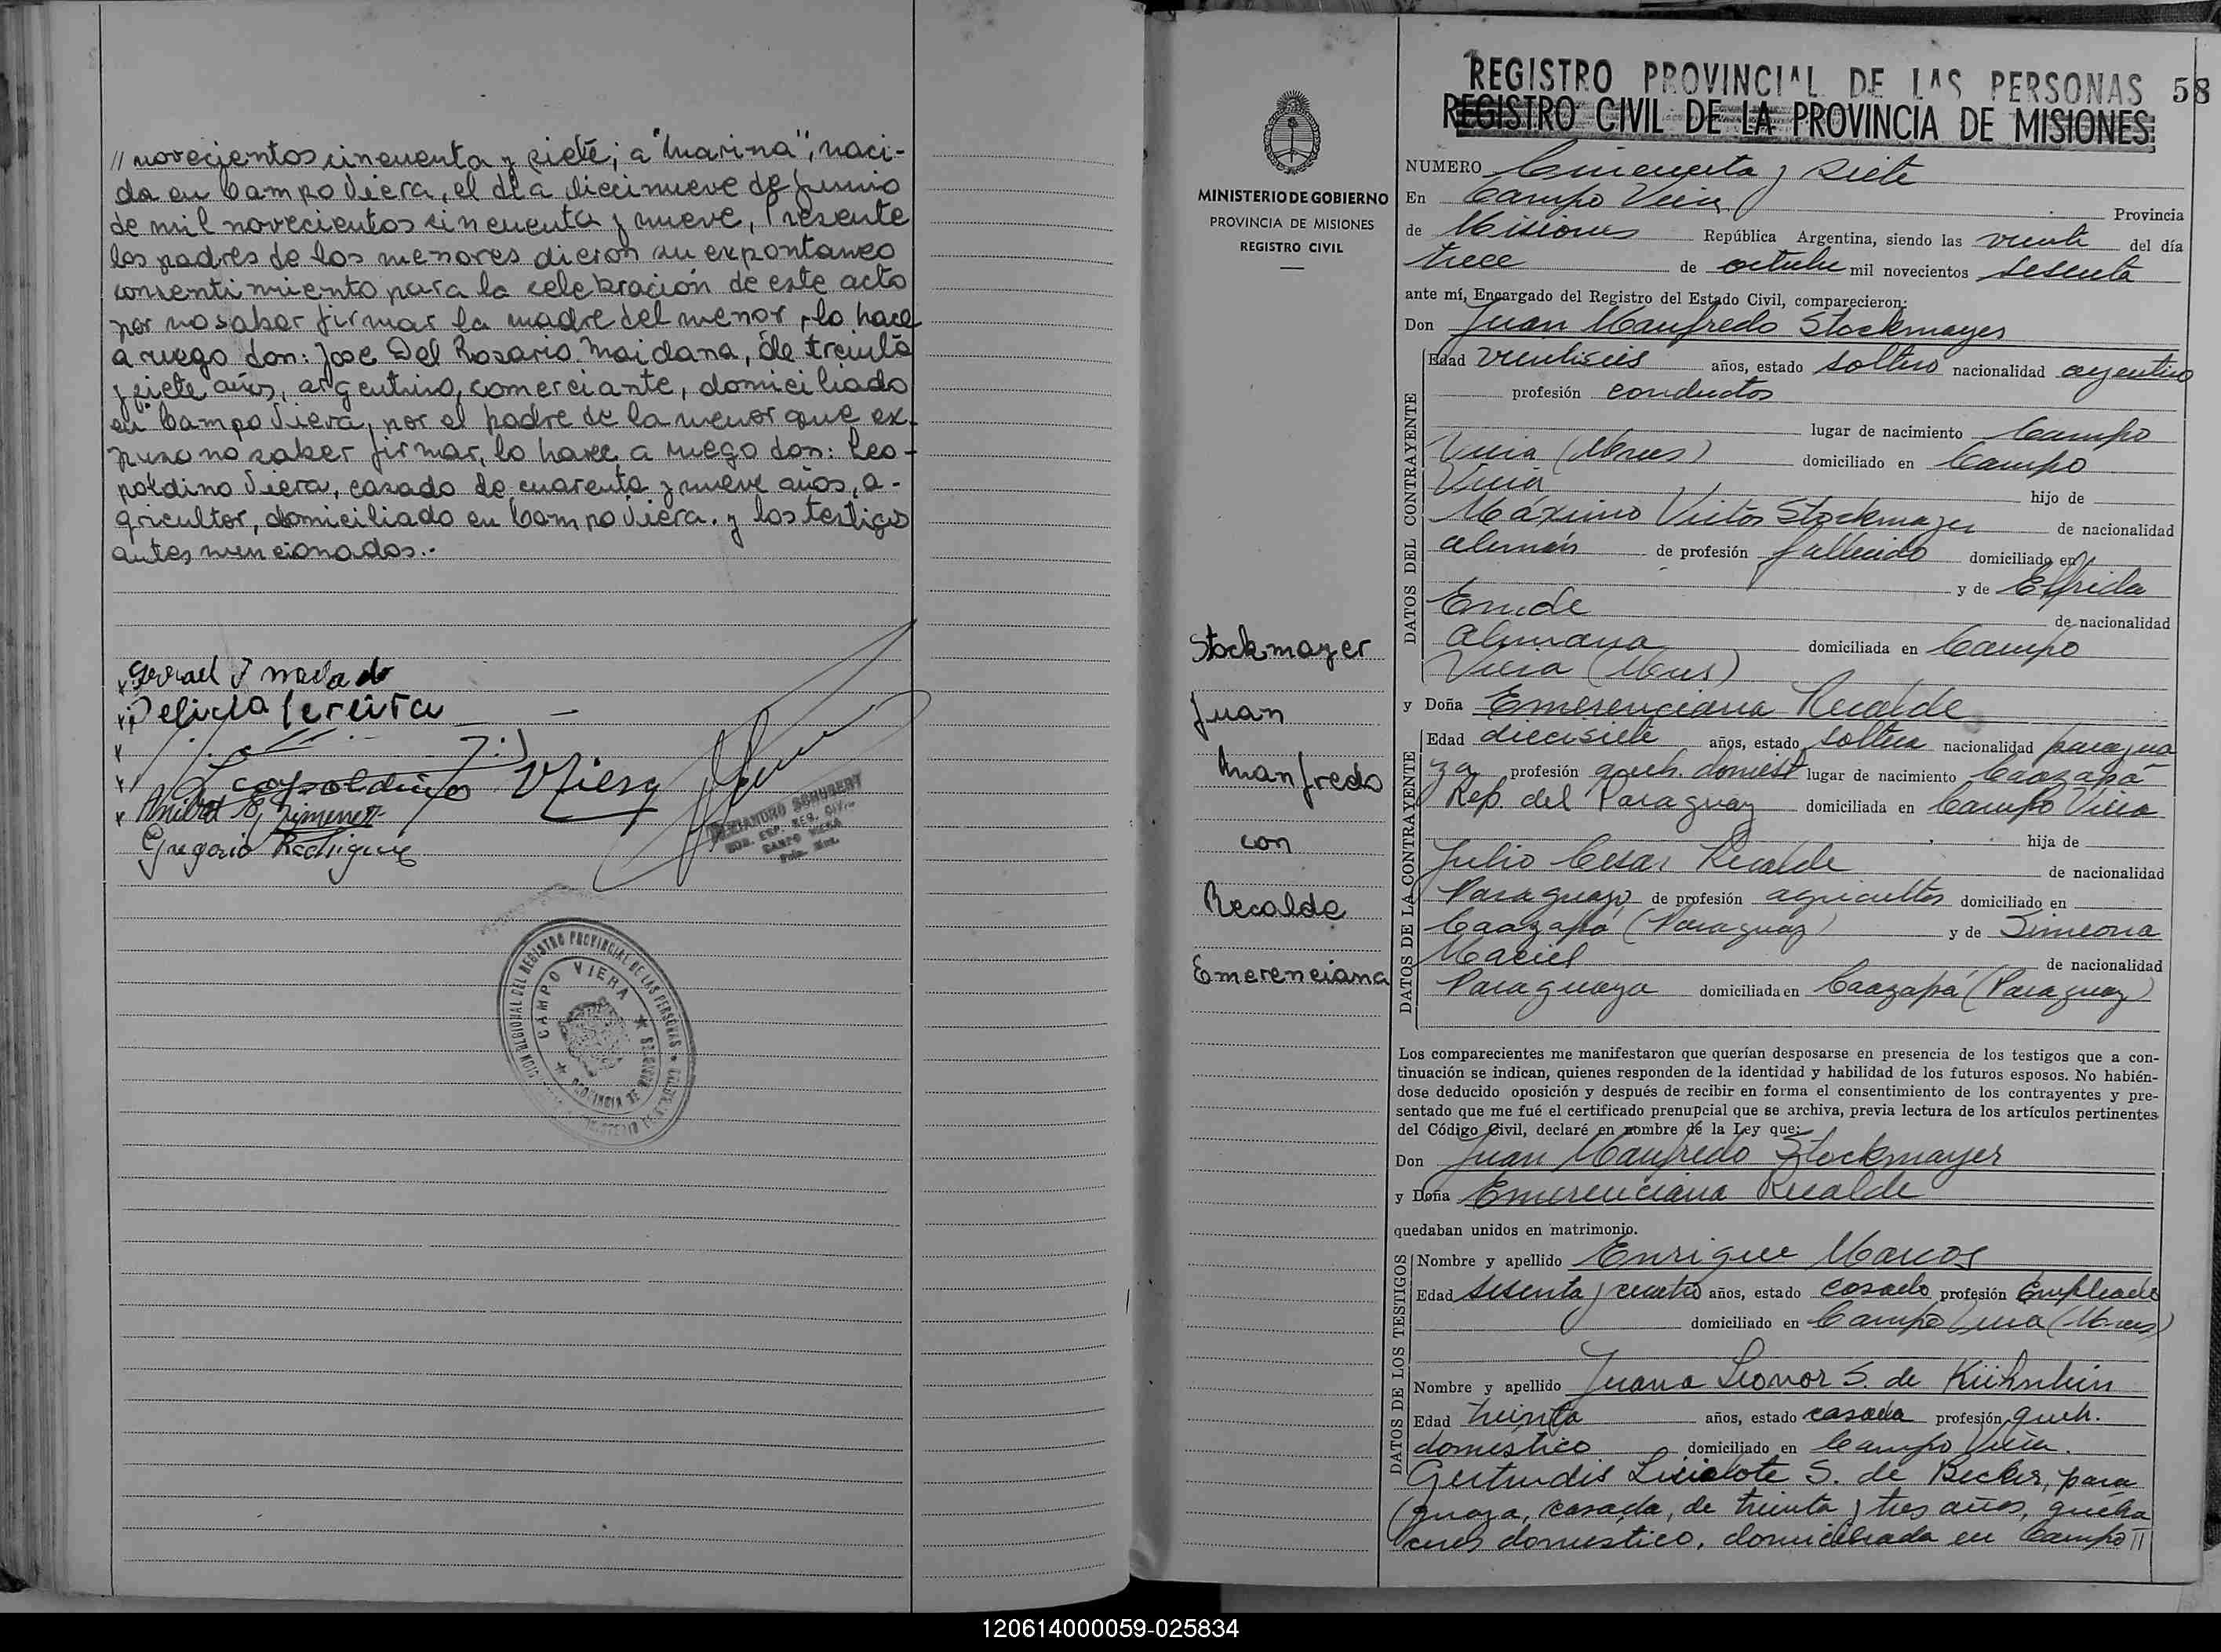 // novecientos cincuenta y siete; a "Marina", naci-
da en Campo Viera, el día diecinueve de Junio
de mil novecientos cincuenta y nueve, Presente
los padres de los menores dieron su expontaneo
consentimiento para la celebración de este acto
por no saber firmar la madre del menor, lo hace
a ruego don: José Del Rosario Maidana, de treinta
y siete años, argentino, comerciante, domiciliado
en Campo Viera, por el padre de la menor que ex-
puso no saber firmar, lo hace a ruego don: Leo-
poldino Viera, casado de cuarenta y nueve años, a-
gricultor, domiciliado en Campo Viera. y los testigos
antes mencionados.-
Leopoldino Viera
Anibal E. Jimenez
Gregorio Rodriguez
ALEJANDRO SCHUBERT
ENC. ESP. REG. CIV.
CAMPO VIERA
REGISTRO PROVINCIAL DE LAS PERSONAS
CAMPO VIERA
PROVINCIA DE MISIONES
MINISTERIO DE GOBIERNO
PROVINCIA DE MISIONES
REGISTRO CIVIL
Stockmayer
Juan
Manfredo
con
Recalde
Emerenciana
REGISTRO PROVINCIAL DE LAS PERSONAS 58
REGISTRO CIVIL DE LA PROVINCIA DE MISIONES
NUMERO Cincuenta y siete
En Campo Viera Provincia
de Misiones República Argentina, siendo las veinte del día
trece de octubre mil novecientos sesenta
ante mí, Encargado del Registro del Estado Civil, comparecieron:
Don Juan Manfredo Stockmayer
DATOS DEL CONTRAYENTE
Edad veintiseis años, estado soltero nacionalidad argentino
profesión conductor
lugar de nacimiento Campo
Viera (Mnes) domiciliado en Campo
Viera hijo de
Máximo Victor Stockmayer de nacionalidad
alemán de profesión fallecido domiciliado en
y de Elfrida
de nacionalidad
Alemana domiciliada en Campo
Viera (Mnes)
y Doña Emerenciana Recalde
DATOS DE LA CONTRAYENTE
Edad diecisiete años, estado soltera nacionalidad paragua
ya profesión queh. domest lugar de nacimiento Caazapá
Rep. del Paraguay domiciliada en Campo Viera
hija de
Julio Cesar Recalde de nacionalidad
Paraguayo de profesión agricultor domiciliado en
Caazapá (Paraguay) y de Simeona
Maciel de nacionalidad
Paraguaya domiciliada en Caazapá (Paraguay)
Los comparecientes me manifestaron que querían desposarse en presencia de los testigos que a con-
tinuación se indican, quienes responden de la identidad y habilidad de los futuros esposos. No habién-
dose deducido oposición y después de recibir en forma el consentimiento de los contrayentes y pre-
sentado que me fué el certificado prenupcial que se archiva, previa lectura de los artículos pertinentes
del Código Civil, declaré en nombre de la Ley que:
Don Juan Manfredo Stockmayer
y Doña Emerenciana Recalde
quedaban unidos en matrimonio.
DATOS DE LOS TESTIGOS
Nombre y apellido Enrique Marcos
Edad sesenta y cuatro años, estado casado profesión Empleado
domiciliado en Campo Viera (Mnes)
Nombre y apellido Juana Leonor S. de Kühnlein
Edad treinta años, estado casada profesión queh.
doméstico domiciliado en Campo Viera.
Gertrudis Liselote S. de Becker, para
guaya, casada, de treinta y tres años, queha
ceres doméstico, domiciliada en Campo //
120614000059-025834